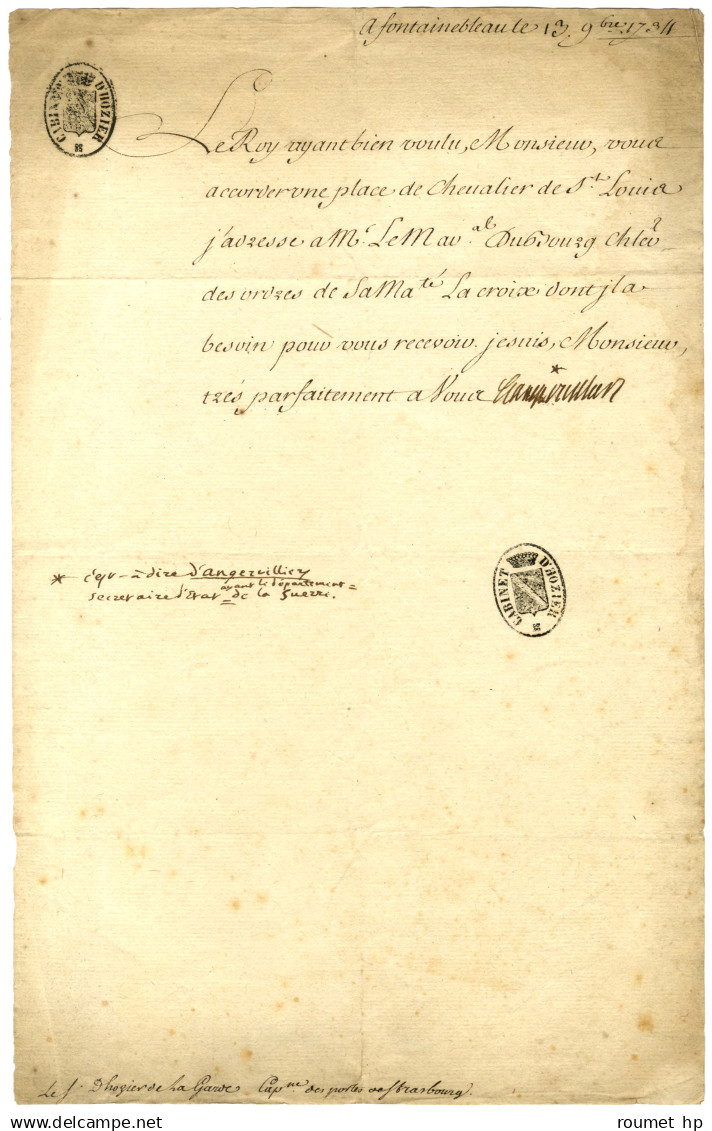 A fontainebleau le 13. 9bre. 1734
CABINET D'HOZIER
Le Roy ayant bien voulu, Monsieur, vous
accorder vne place de Chevalier de St. Louis
j'adresse a Mr. Le Mar.al Dubourg Chler.
des ordres de Sa Maté La croix dont jl a
besoin pour vous recevoir. je suis, Monsieur,
trés parfaitement a Vous * Dangervilliers
* c'est-à-dire d'angervilliers
ayant le département =
secretaire d'Etat = de la Guerre.
CABINET D'HOZIER
Le Sr. Dhozier de La Garde Capne des portes de Strasbourg.
roumet hp